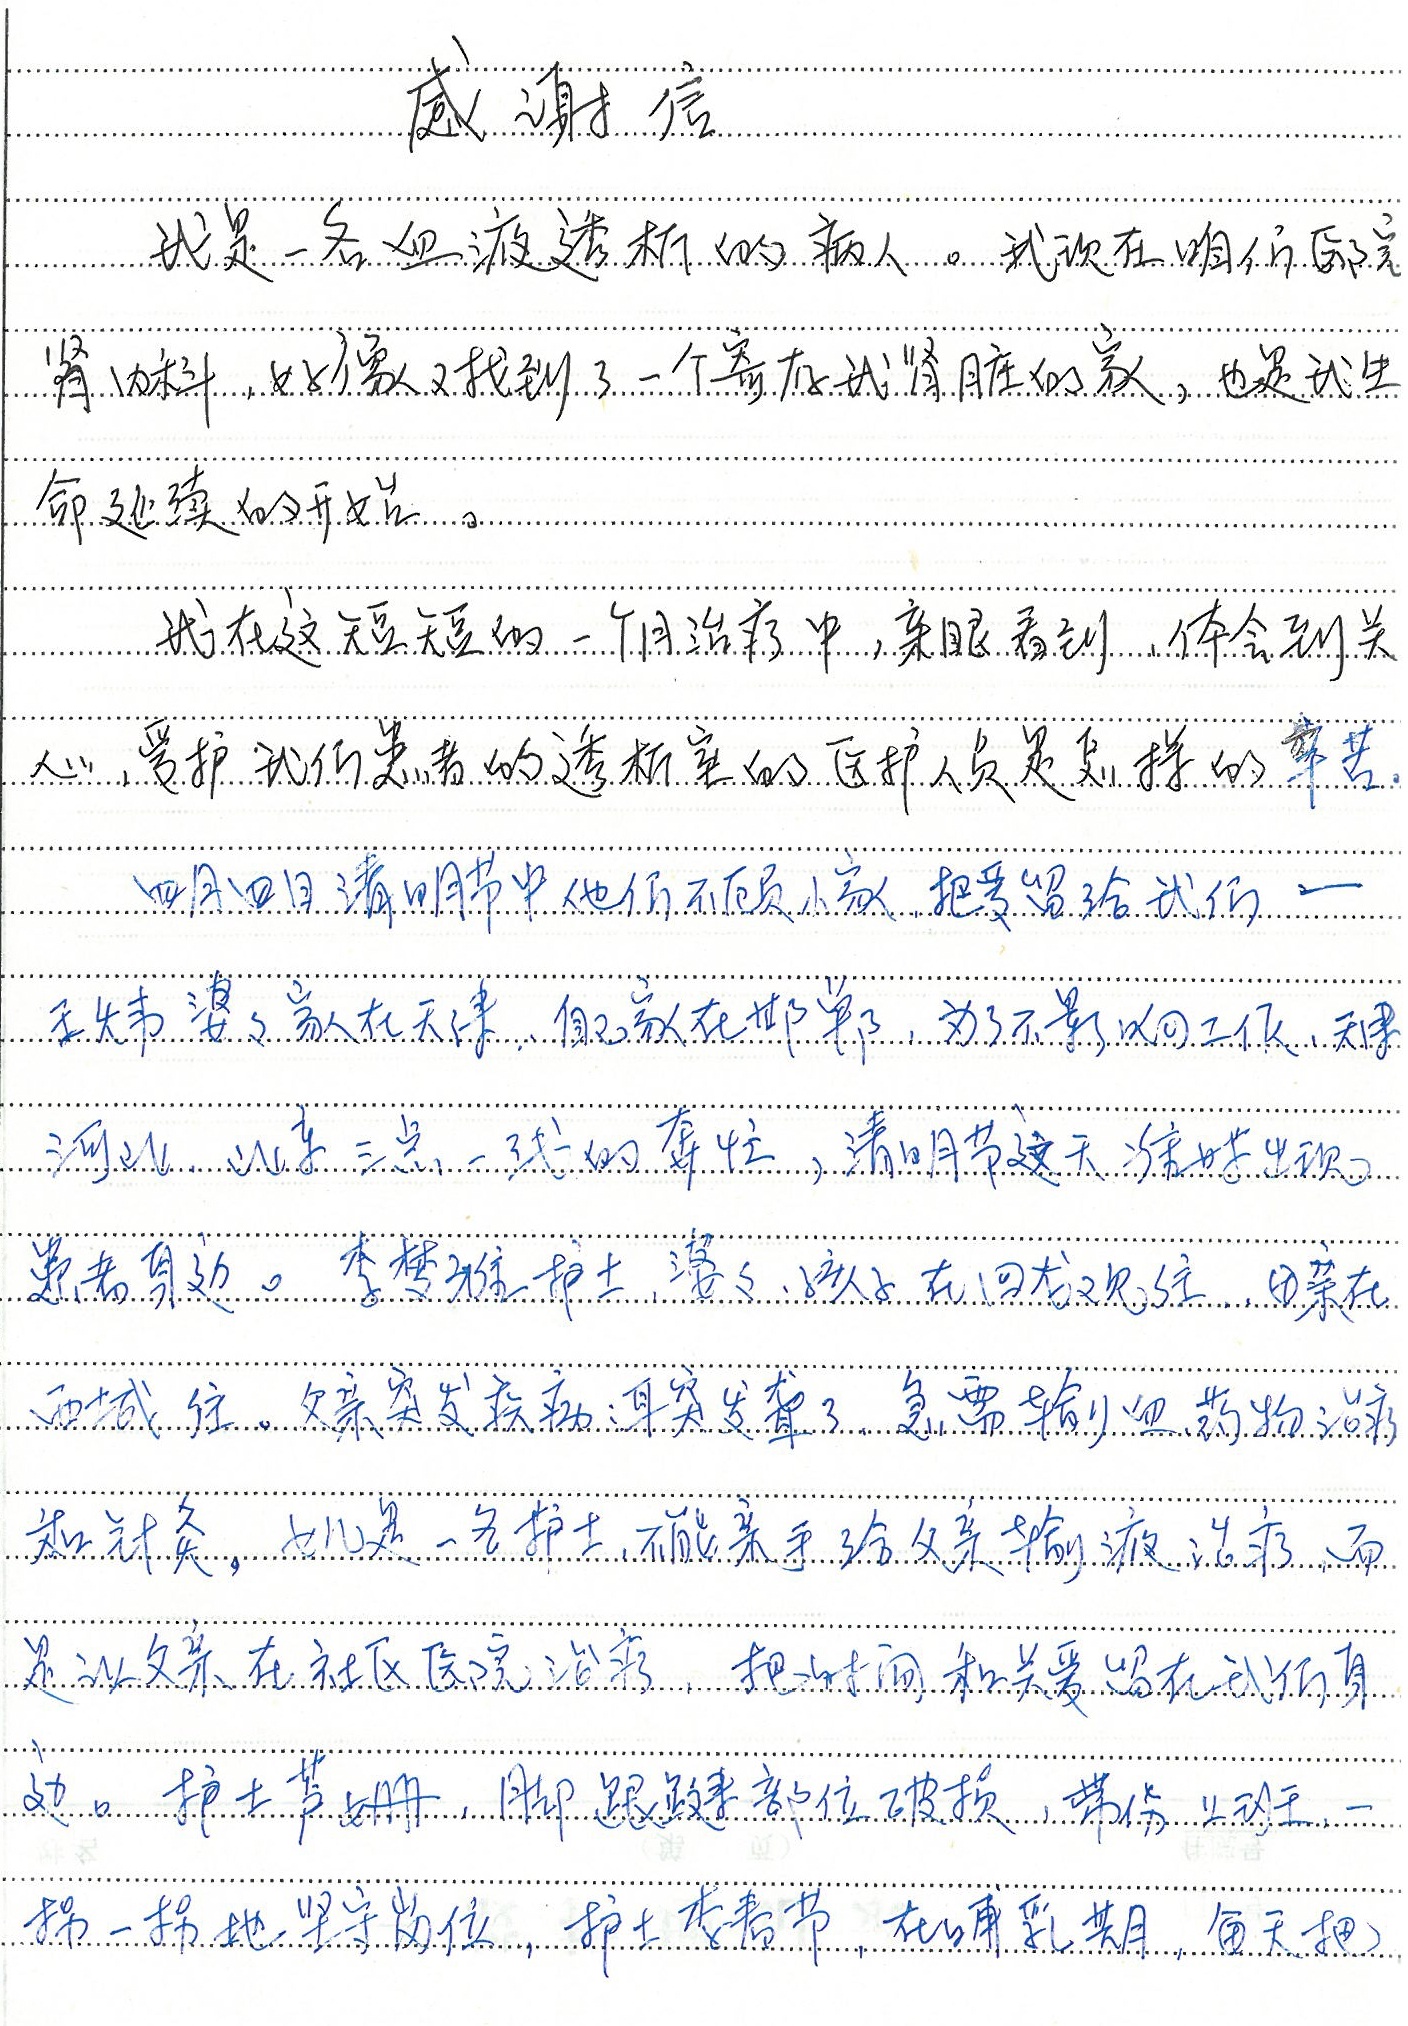 感谢信
我是一名血液透析的病人。我现在咱们医院
肾内科，好像又找到了一个寄存我肾脏的家，也是我生
命延续的开始。
我在这短短的一个月治疗中，亲眼看到，体会到关
心，爱护我们患者的透析室的医护人员是怎样的辛苦。
四月四日清明节中他们不顾小家，把爱留给我们一
王炜婆婆家在天津，自己家在邯郸，为了不影响工作，天津
河北、北京三点一线的奔忙，清明节这天准时出现
患者身边。李梦雅护士，婆婆、孩子在回龙观住，母亲在
西城住。父亲突发疾病耳突发聋了，急需输血药物治疗
和针灸，女儿是一名护士，不能亲手给父亲输液治疗，而
是让父亲在社区医院治疗，把时间和关爱留在我们身
边。护士芦姗，脚跟腱部位破损，带伤上班，一
拐一拐地坚守岗位，护士李春节，在哺乳期，每天把